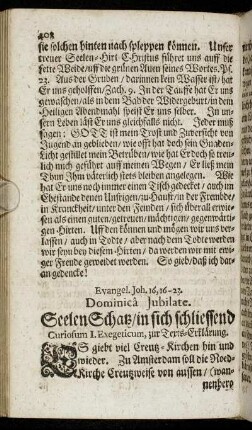 408
sie solchen hinten nach schleppen können. Unser
treuer Seelen-Hirt Christus führet uns auff die
fette Weide/ uff die grünen Auen seines Wortes. Ps.
23. Aus der Gruben / darinnen kein Wasser ist/ hat
Er uns geholffen/ Zach. 9. In der Tauffe hat Er uns
gewaschen/ als in dem Bad der Widergeburt/ in dem
Heiligen Abendmahl speist Er uns selber. In un-
serm Leben läst Er uns gleichfalls nicht. Jeder muß
sagen: GOTT ist mein Trost und Zuversicht von
Jugend an geblieben/ wie offt hat doch sein Gnaden-
Licht gestillet mein Betrüben/ wie hat Er doch so treu-
lich mich geführt auff meinen Wegen / Er ließ mein
Thun Ihm väterlich stets bleiben angelegen. Wie
hat Er uns noch immer einen Tisch gedecket / auch im
Ehestande denen Unsrigen/ zu Hauß/ in der Frembde/
in Kranckheit/ unter den Feinden/ sich überal erwie-
sen als einen guten/ getreuen/ mächtigen/ gegenwärti-
gen-Hirten. Uff den können und mögen wir uns ver-
lassen/ auch in Todte/ aber nach dem Tode werden
wir seyn bey diesem-Hirten/ da werden wir mit ewi-
ger Freude geweidet werden. So gieb/ daß ich dar-
an gedencke!
Evangel. Joh. 16, 16-23.
Dominicâ Jubilate.
Seelen Schatz/ in sich schliessend
Curiosum I. Exegeticum, zur Texts-Erklärung.
ES giebt viel Creutz-Kirchen hin und
wieder. Zu Amsterdam soll die Noed-
Kirche Creutzweise von aussen/ (wan-
nenhero